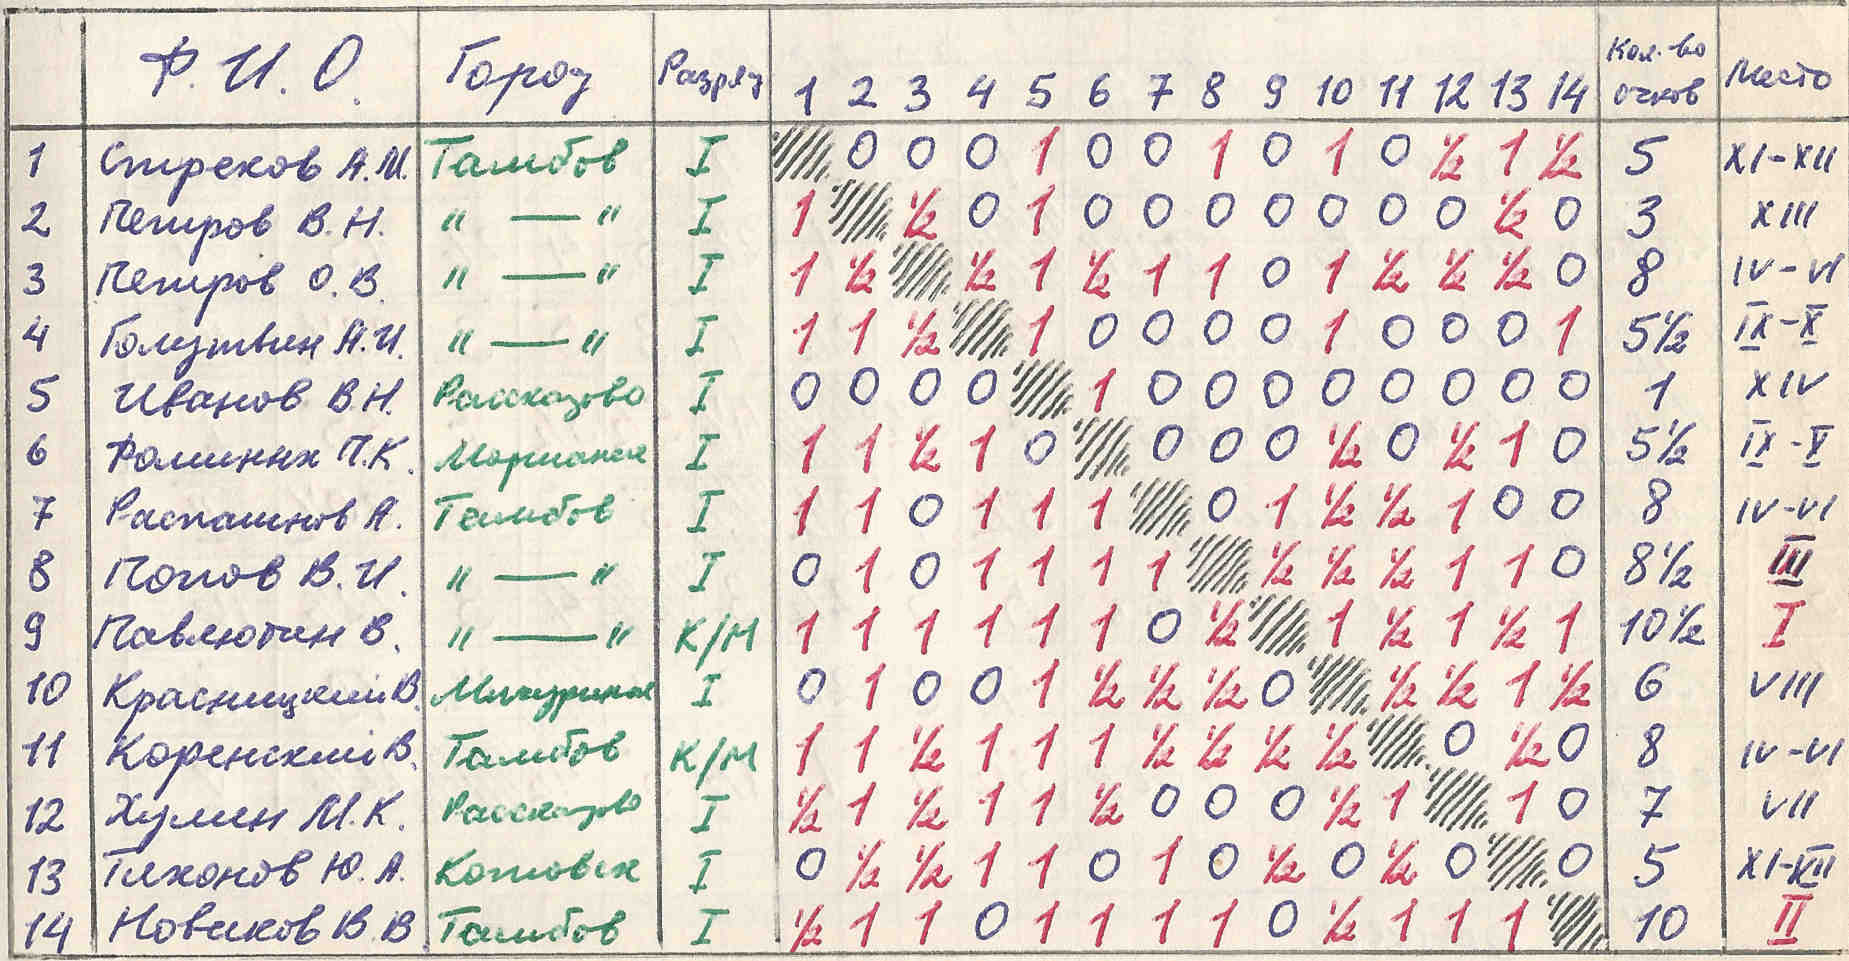 Ф. И. О. Город Разряд 1 2 3 4 5 6 7 8 9 10 11 12 13 14 Кол-во очков Место
1 Стреков А.М. Тамбов I 0 0 0 1 0 0 1 0 1 0 ½ 1 ½ 5 XI-XII
2 Петров В.Н. " — " I 1 ½ 0 1 0 0 0 0 0 0 0 ½ 0 3 XIII
3 Петров О.В. " — " I 1 ½ ½ 1 ½ 1 1 0 1 ½ ½ ½ 0 8 IV-VI
4 Голузтвин А.И. " — " I 1 1 ½ 1 0 0 0 0 1 0 0 0 1 5½ IX-X
5 Иванов В.Н. Рассказово I 0 0 0 0 1 0 0 0 0 0 0 0 0 1 XIV
6 Фоминых П.К. Моршанск I 1 1 ½ 1 0 0 0 0 ½ 0 ½ 1 0 5½ IX-X
7 Распашнов А. Тамбов I 1 1 0 1 1 1 0 1 ½ ½ 1 0 0 8 IV-VI
8 Попов В.И. " — " I 0 1 0 1 1 1 1 ½ ½ ½ 1 1 0 8½ III
9 Павлютин В. " — " К/М 1 1 1 1 1 1 0 ½ 1 ½ 1 ½ 1 10½ I
10 Красницкий В. Мичуринск I 0 1 0 0 1 ½ ½ ½ 0 ½ ½ 1 ½ 6 VIII
11 Коренский В. Тамбов К/М 1 1 ½ 1 1 1 ½ ½ ½ ½ 0 ½ 0 8 IV-VI
12 Хулин М.К. Рассказово I ½ 1 ½ 1 1 ½ 0 0 0 ½ 1 1 0 7 VII
13 Тихонов Ю.А. Котовск I 0 ½ ½ 1 1 0 1 0 ½ 0 ½ 0 0 5 XI-XII
14 Новиков В.В Тамбов I ½ 1 1 0 1 1 1 1 0 ½ 1 1 1 10 II